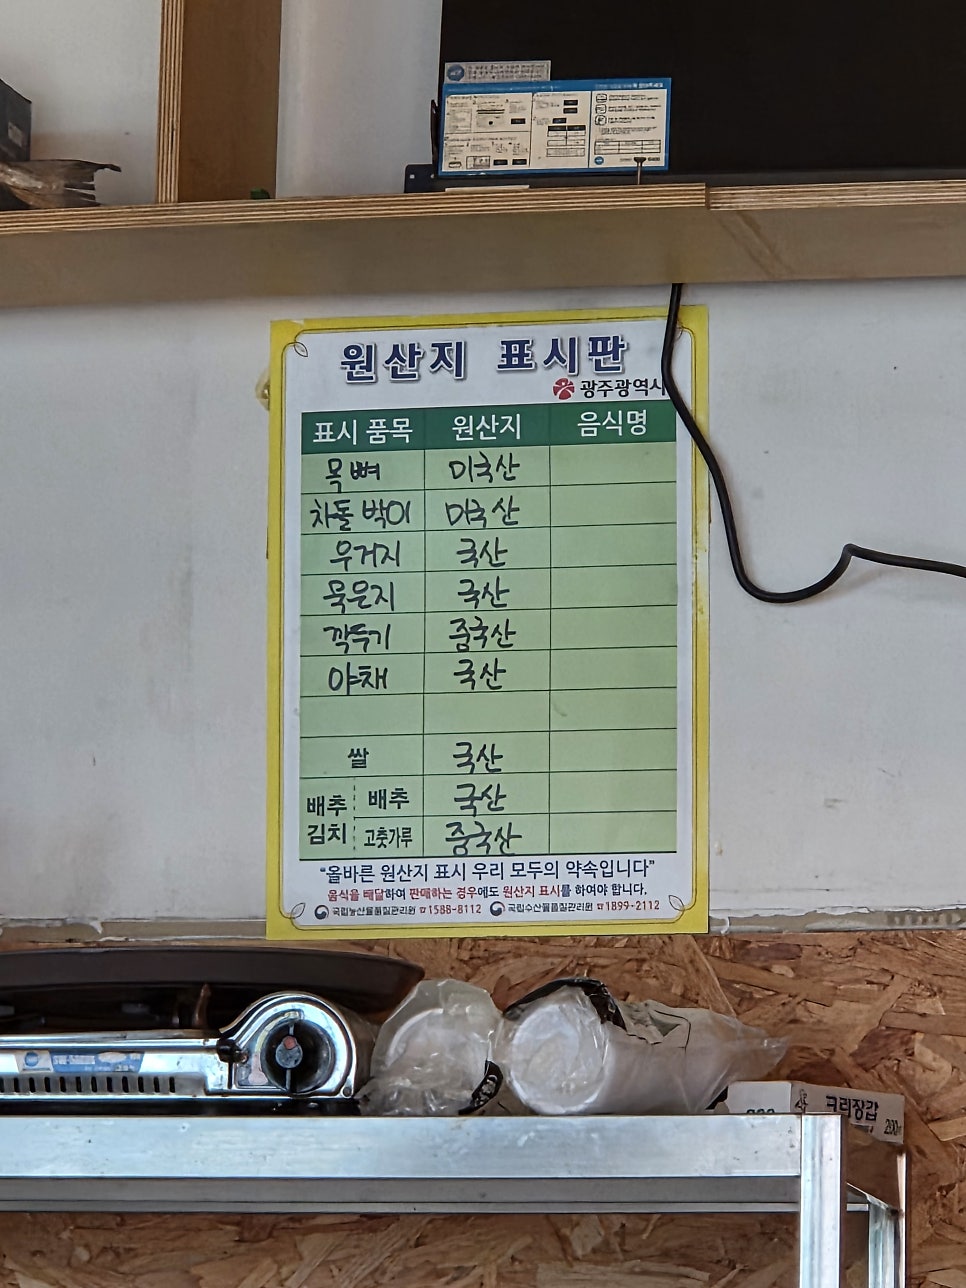 원산지 표시판
광주광역시
표시 품목 원산지 음식명
목뼈 미국산
차돌박이 미국산
우거지 국산
묵은지 국산
깍두기 중국산
야채 국산
쌀 국산
배추김치 배추 국산
고춧가루 중국산
"올바른 원산지 표시 우리 모두의 약속입니다"
음식을 배달하여 판매하는 경우에도 원산지 표시를 하여야 합니다.
국립농산물품질관리원 ☎1588-8112 국립수산물품질관리원 ☎1899-2112
크린장갑